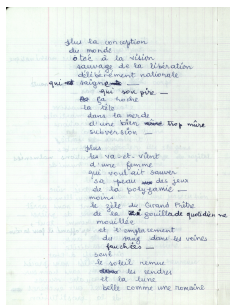 plus la conception
du monde
ôtée à la vision
sauvage de la libération
délibérément nationale
qui saigne
qui soupire —
la horde
la tête
dans la merde
d'une bien trop mûre
subversion —
plus
les va-et-vient
d'une femme
qui voulait sauver
sa peau des jeux
de la polygamie —
moins
le zèle du Grand Prêtre
de la quotidienne
mouillée
et l'englacement
du sang dans les veines
fauchées —
sous
le soleil remue
les cendres
et la lune
belle comme une romaine